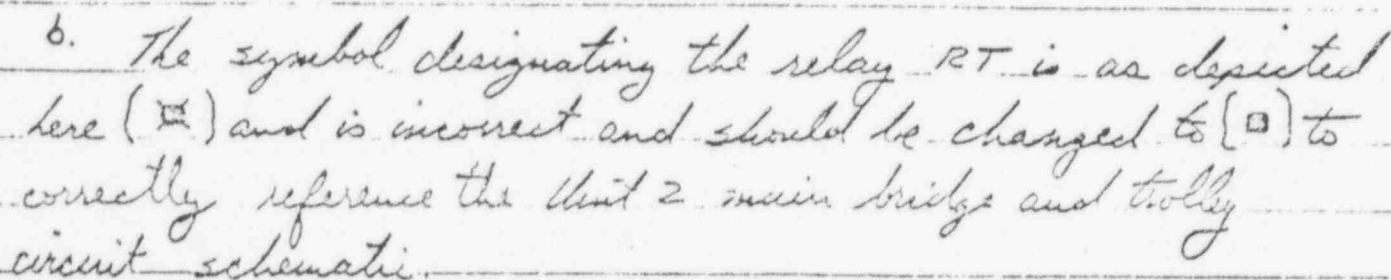 b. The symbol designating the relay RT is as depicted
here (¤) and is incorrect and should be changed to (□) to
correctly reference the Unit 2 main bridge and trolley
circuit schematic.